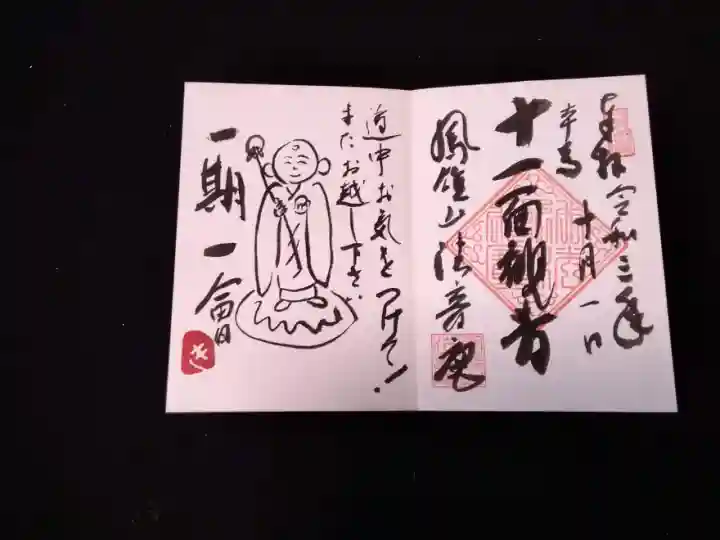 奉拝 令和三年
十月一日
本尊
十一面観音
鳳雄山法音庵
道中お気をつけて!
またお越し下さい。
一期一會
き